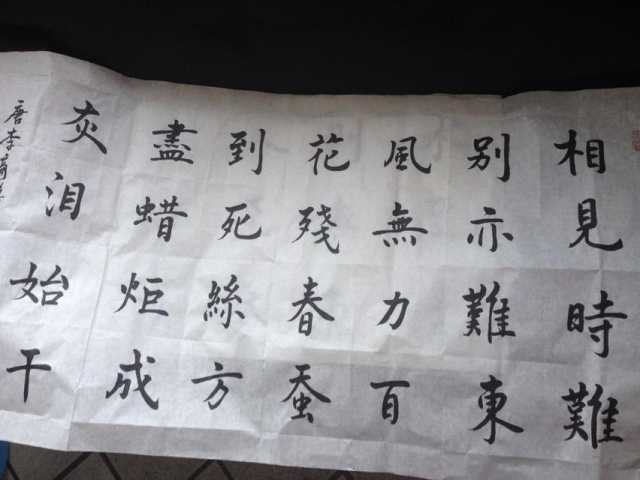 相見時難
別亦難東
風無力百
花殘春蚕
到死絲方
盡蜡炬成
灰泪始干
唐李商